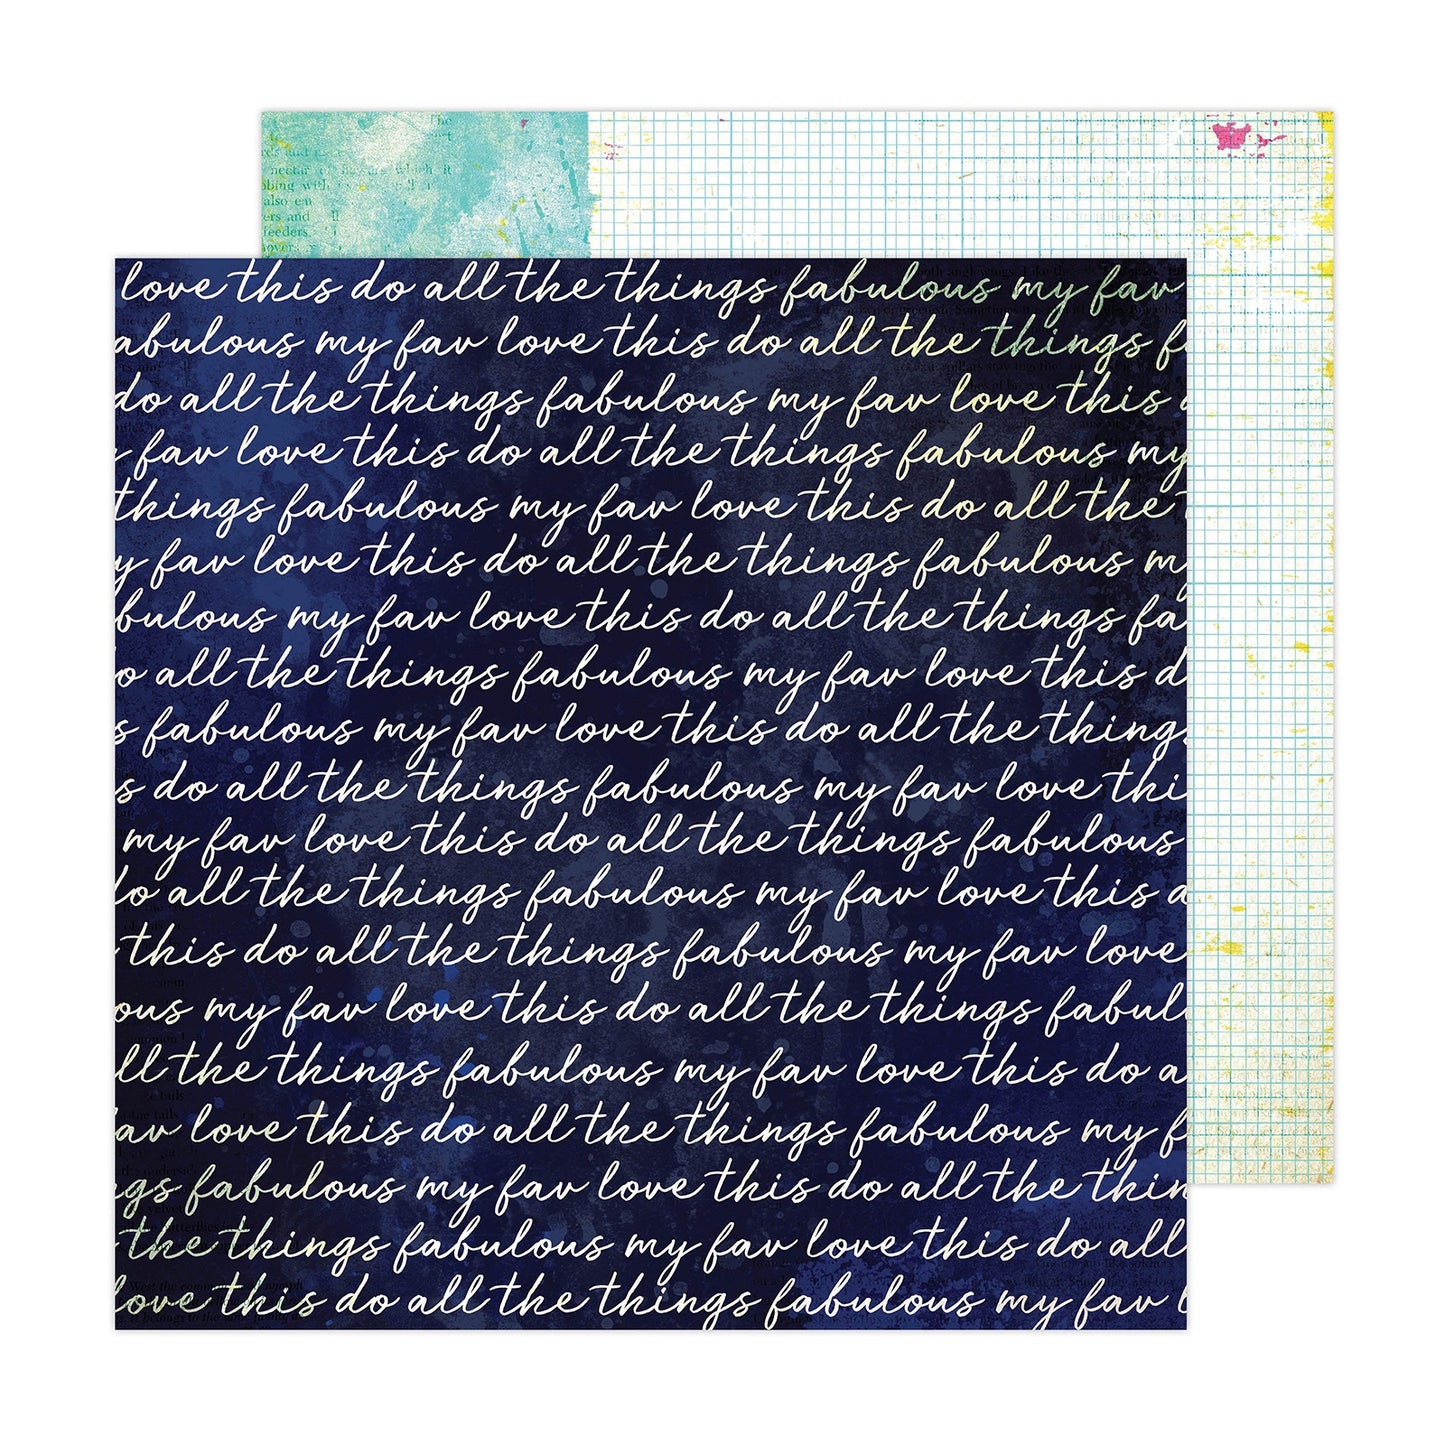 the
nectar of flowers which it
also
and
feeders
love this do all the things fabulous my fav
abulous my fav love this do all the things f
do all the things fabulous my fav love this
fav love this do all the things fabulous my
things fabulous my fav love this do all the
y fav love this do all the things fabulous m
bulous my fav love this do all the things fa
o all the things fabulous my fav love this d
s fabulous my fav love this do all the thing
s do all the things fabulous my fav love thi
my fav love this do all the things fabulous
do all the things fabulous my fav love this d
this do all the things fabulous my fav love
ous my fav love this do all the things fabul
ll the things fabulous my fav love this do a
av love this do all the things fabulous my f
gs fabulous my fav love this do all the thin
the things fabulous my fav love this do all
love this do all the things fabulous my fav l